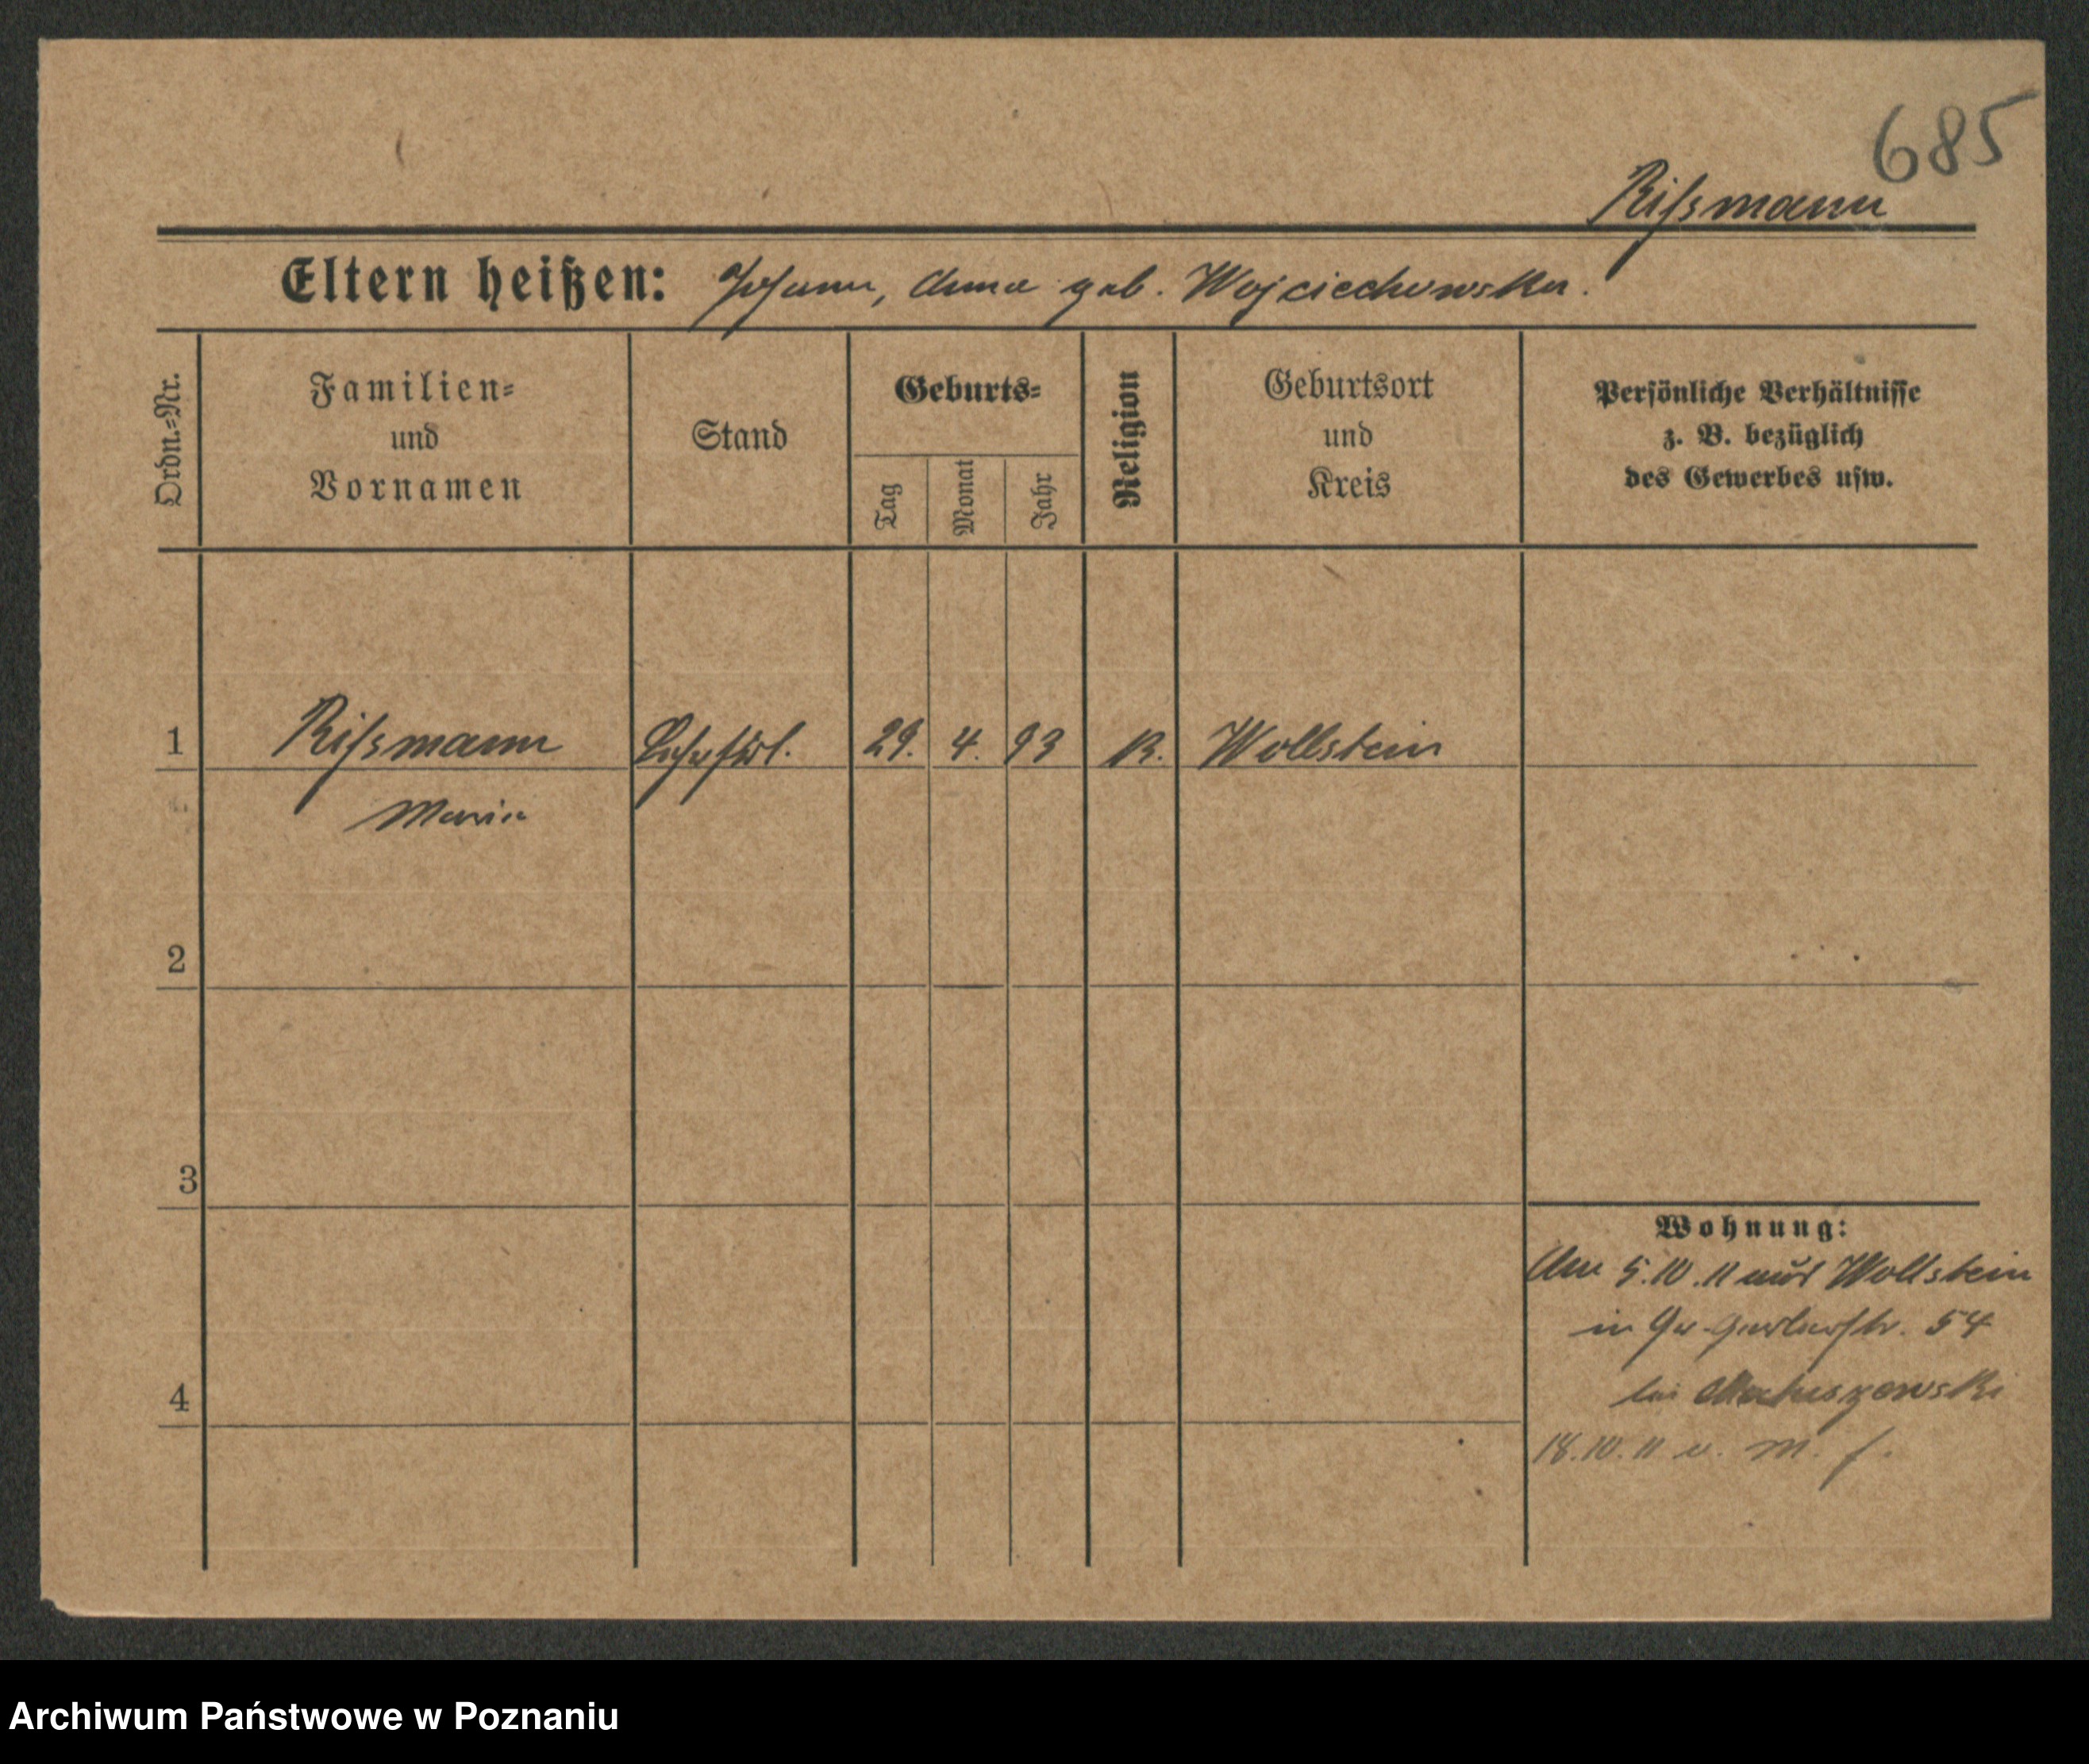 685
Rißmann
Eltern heißen: Johann, Anna geb. Wojciechowska.
Ordn.=Nr.
Familien=
und
Vornamen
Stand
Geburts=
Tag
Monat
Jahr
Religion
Geburtsort
und
Kreis
Persönliche Verhältnisse
z. B. bezüglich
des Gewerbes usw.
1 Rißmann 29. 4. 93 K. Wollstein
Maria
2
3
4
Wohnung:
Am 5.10.11 aus Wollstein
in 54
bei Matuszewski
18.10.11 v. M. f.
Archiwum Państwowe w Poznaniu